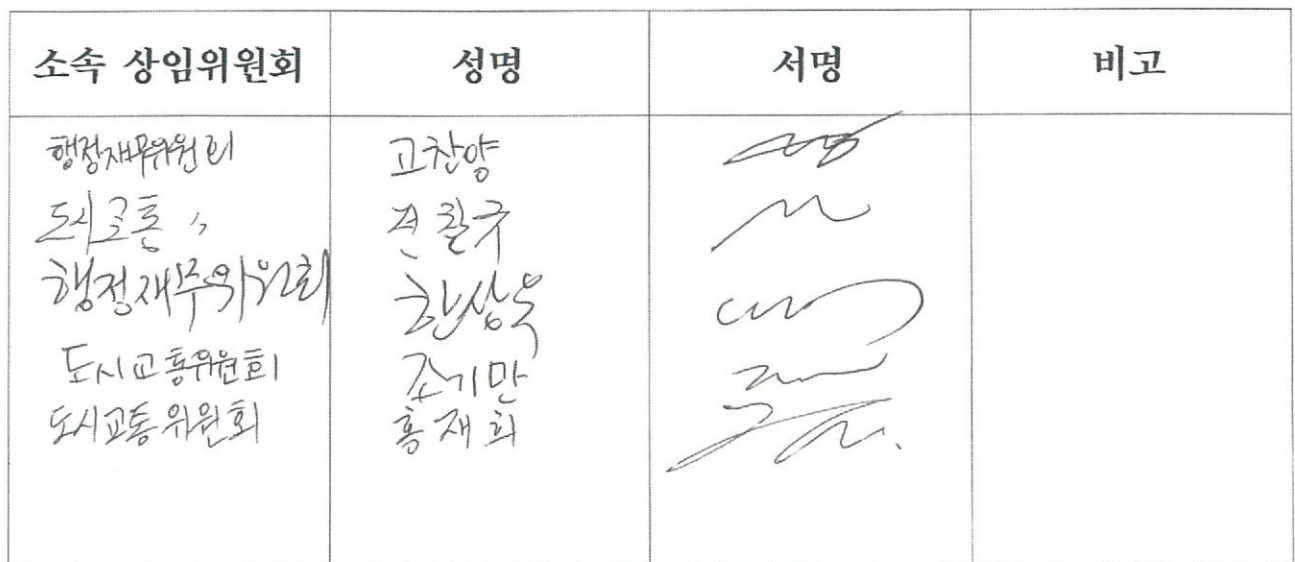 소속 상임위원회 성명 서명 비고
행정재무위원회 고찬양
도시교통 〃 전철규
행정재무위원회 한상욱
도시교통위원회 조기만
도시교통위원회 홍재희